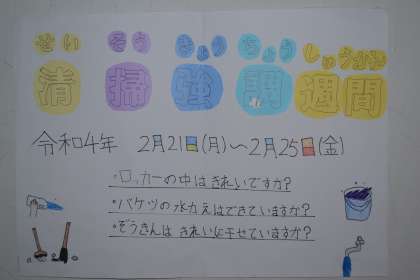 せい そう きょう ちょう しゅうかん
清掃強調週間
令和4年 2月21日(月)〜2月25日(金)
・ロッカーの中はきれいですか?
・バケツの水かえはできていますか?
・ぞうきんは きれいに干せていますか?